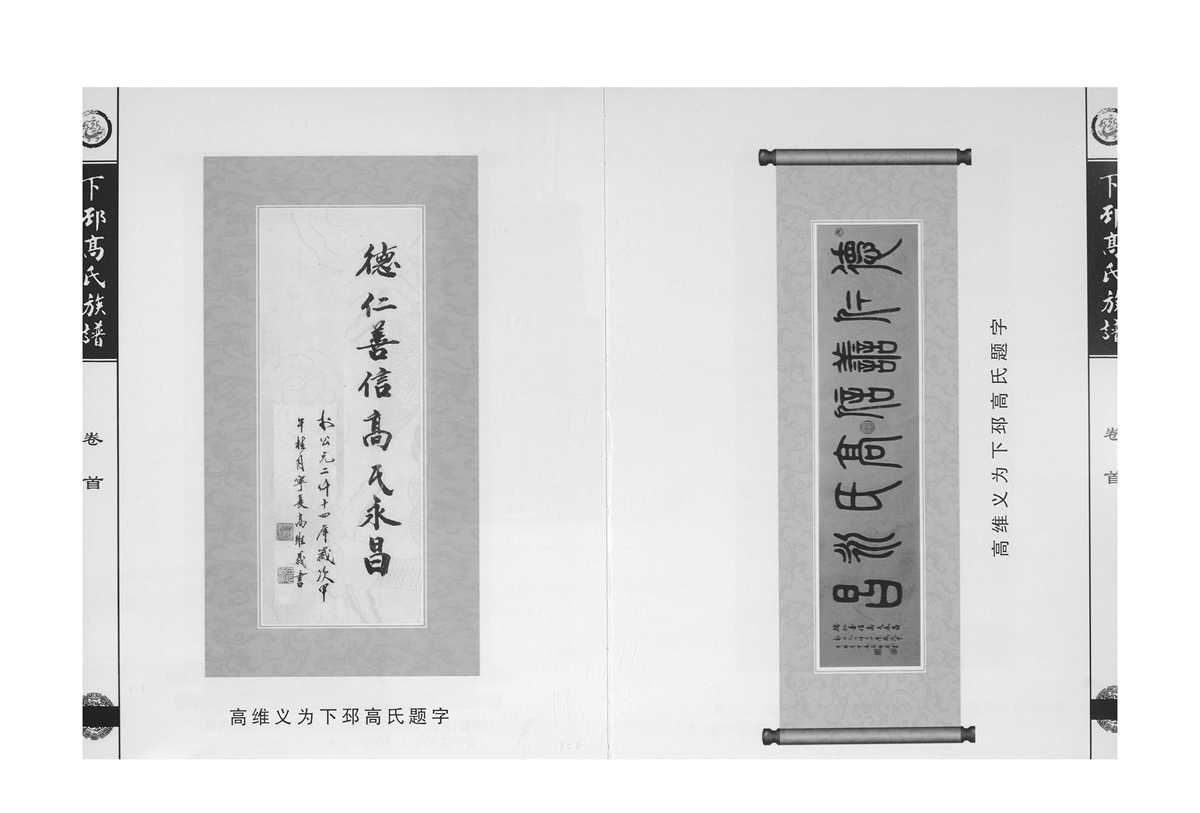 下邳高氏族譜
卷首
德仁善信高氏永昌
於公元二仟十四年歲次甲
午桂月寧長高維義書
高维义为下邳高氏题字
德仁善信高氏永昌
高维义为下邳高氏题字
下邳高氏族譜
卷首